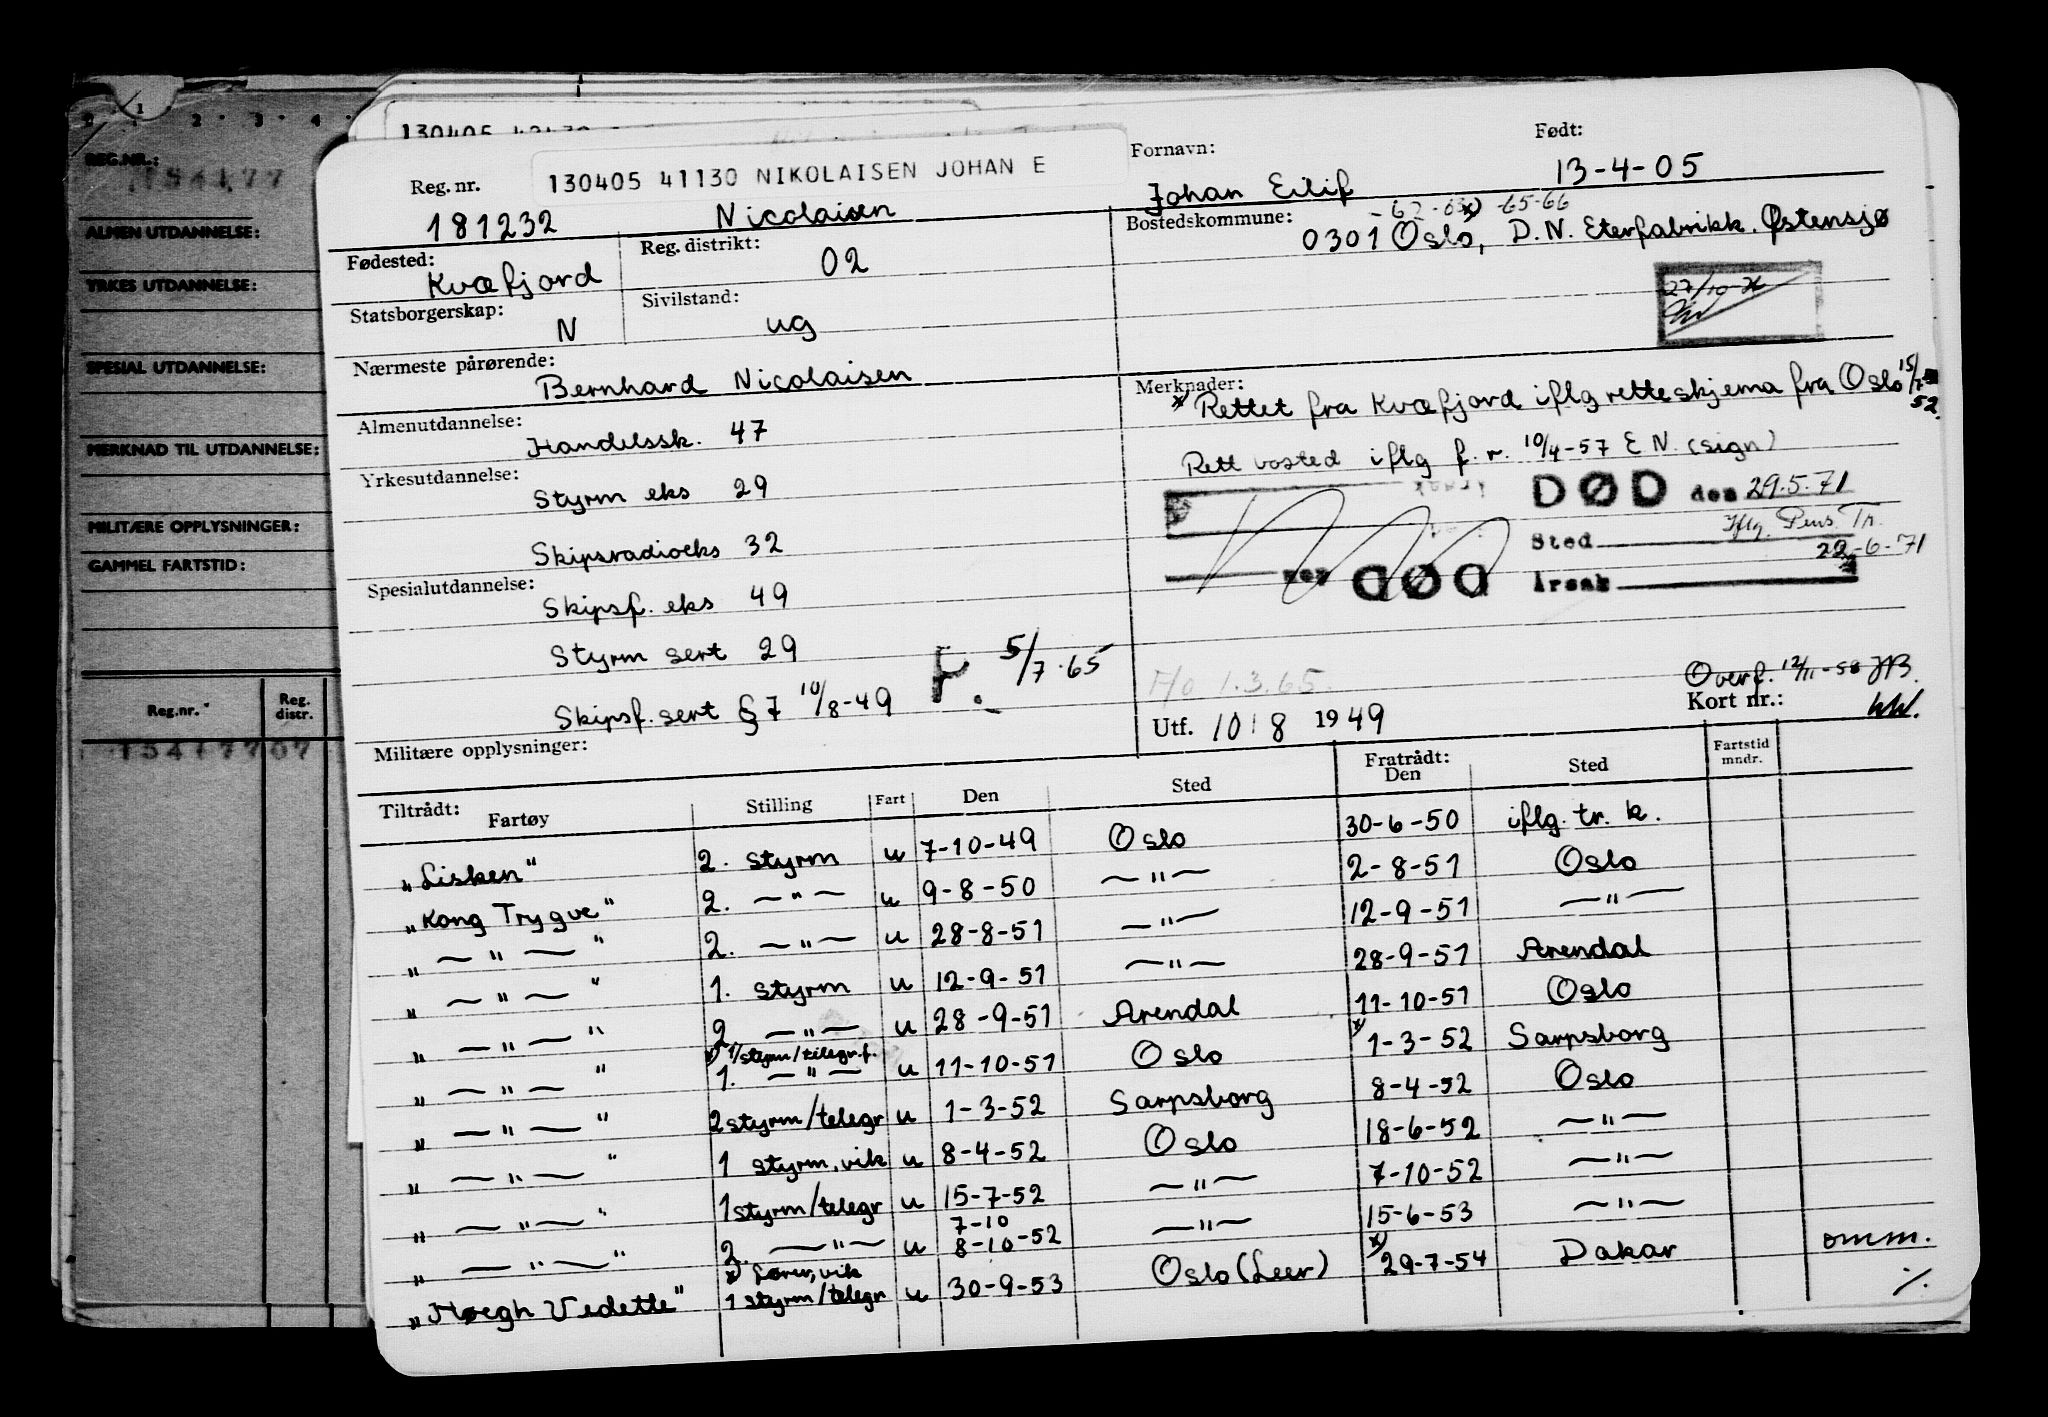 REG.NR.:
154177
ALMEN UTDANNELSE:
YRKES UTDANNELSE:
SPESIAL UTDANNELSE:
MERKNAD TIL UTDANNELSE:
MILITÆRE OPPLYSNINGER:
GAMMEL FARTSTID:
Reg.nr. Reg. distr.
154177 07
Reg. nr. 130405 41130 NIKOLAISEN JOHAN E Fornavn: Født:
181232 Nicolaisen Johan Eilif 13-4-05
Fødested: Kvæfjord Reg. distrikt: 02 Bostedskommune: -62-63 -65-66
0301 Oslo, D.N. Eterfabrikk. Østensjø
Statsborgerskap: N Sivilstand: ug
Nærmeste pårørende: Bernhard Nicolaisen
Merknader: x) Rettet fra Kvæfjord iflg retteskjema fra Oslo 15/7 52.
Almenutdannelse: Handelssk. 47
Rett bosted iflg f. r. 10/4-57 E N. (sign)
Yrkesutdannelse: Styrm eks 29
DØD den 29.5.71
Skipsradioeks 32
Sted Iflg. Pens. Tr.
22-6-71
Årsak
Spesialutdannelse: Skipsf. eks 49
Styrm sert 29
Skipsf. sert § 7 10/8-49 P. 5/7-65
1.3.65.
Overf. 12/11-58
Utf. 10 8 1949 Kort nr.:
Militære opplysninger:
Tiltrådt: Fartøy Stilling Fart Den Sted Fratrådt: Den Sted Fartstid mndr.
„Lisken" 2. styrm u 7-10-49 Oslo 30-6-50 iflg. tr. k.
„Kong Trygve" 2. —"— u 9-8-50 —"— 2-8-51 Oslo
„ —"— " 2. —"— u 28-8-51 —"— 12-9-51 —"—
„ —"— " 1. styrm u 12-9-51 —"— 28-9-51 Arendal
„ —"— " 2. —"— u 28-9-51 Arendal 11-10-51 Oslo
x) 1/styrm/telegr.f.
„ —"— " 1. —"— u 11-10-51 Oslo x) 1-3-52 Sarpsborg
„ —"— " 2 styrm/telegr u 1-3-52 Sarpsborg 8-4-52 Oslo
„ —"— " 1 styrm, vik u 8-4-52 Oslo 18-6-52 —"—
„ —"— " 1 styrm/telegr u 15-7-52 —"— 7-10-52 —"—
7-10
„ —"— " 2. —"— u 8-10-52 —"— 15-6-53 —"—
„Høegh Vedette" 1 styrm/telegr u 30-9-53 Oslo (Leer) x) 29-7-54 Dakar omm.
·/.